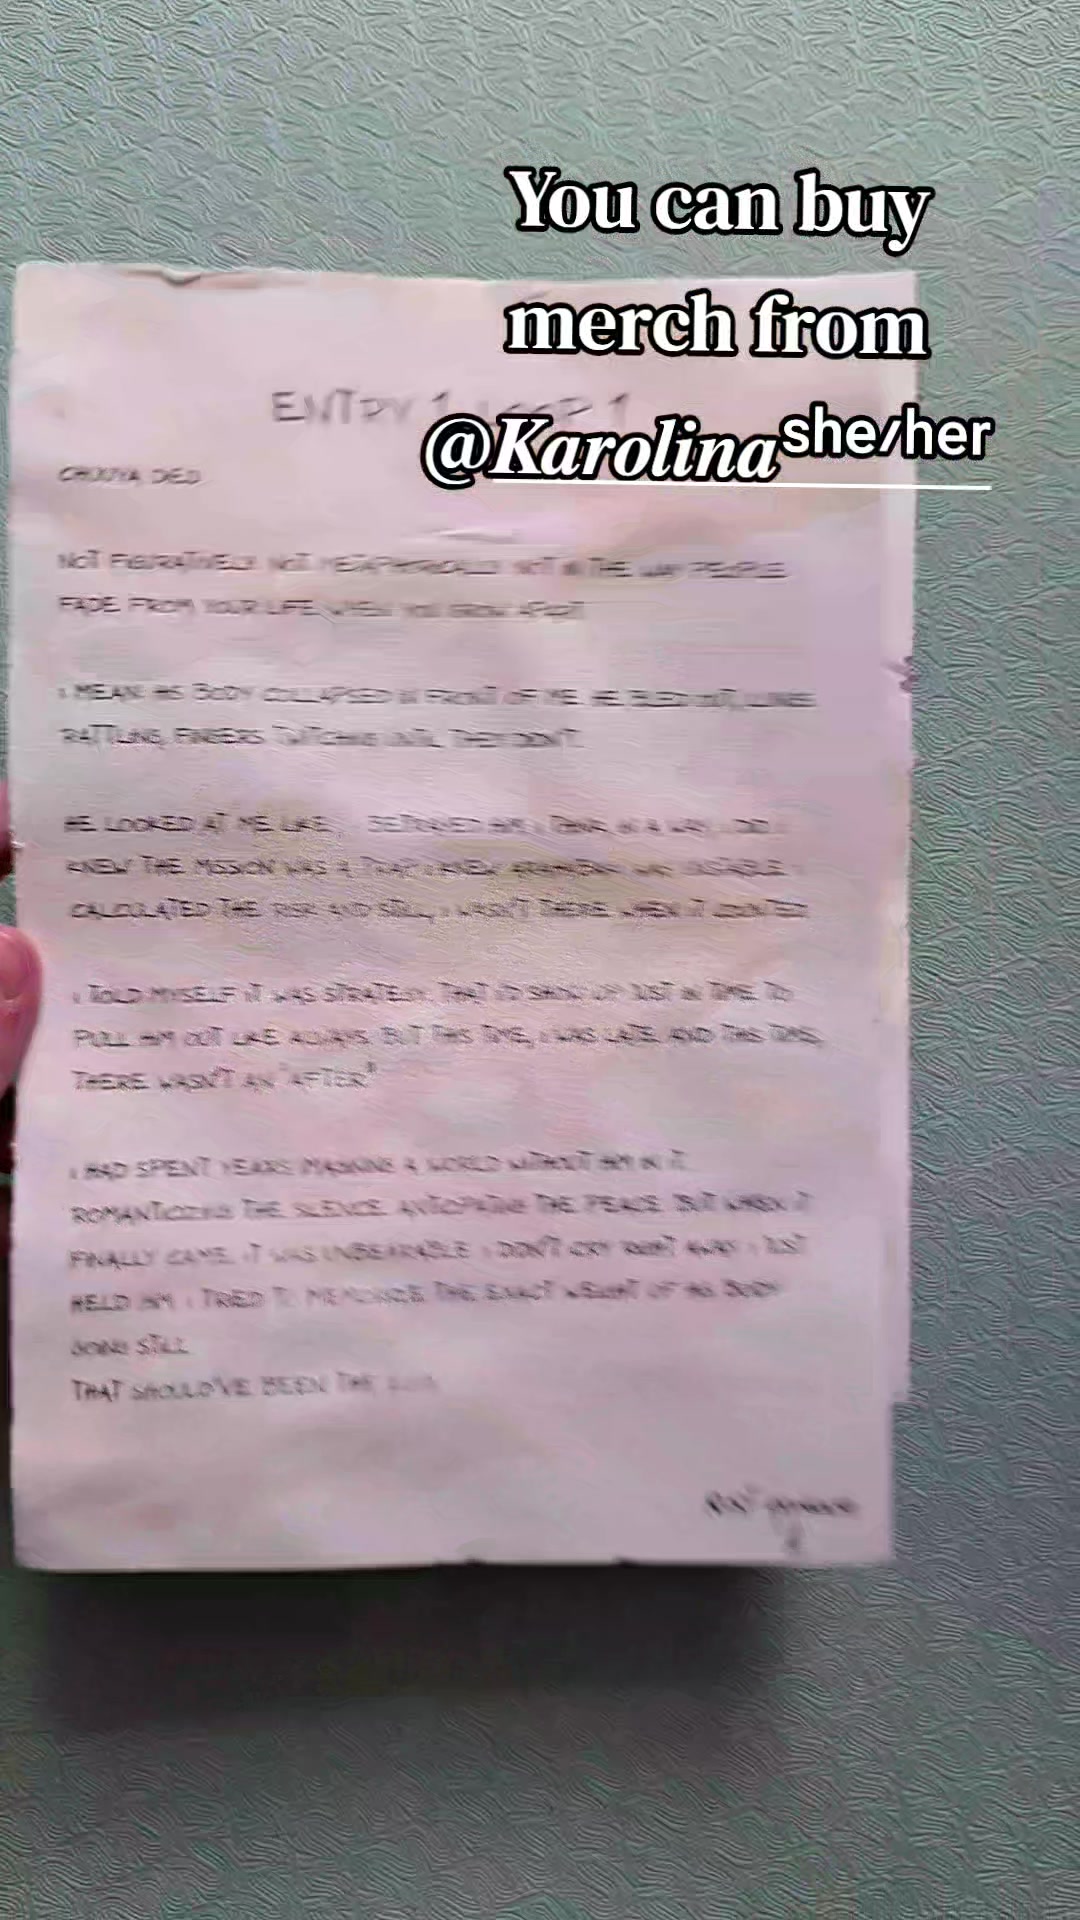 You can buy
merch from
@Karolina she/her
ENTRY 1 LOOP 1
CHUUYA DIED
NOT FIGURATIVELY NOT METAPHORICALLY NOT IN THE WAY PEOPLE
FADE FROM YOUR LIFE WHEN YOU GROW APART
I MEAN HIS BODY COLLAPSED IN FRONT OF ME. HE BLED OUT, LUNGS
RATTLING, FINGERS TWITCHING UNTIL THEY DIDN'T.
HE LOOKED AT ME LIKE I BETRAYED HIM. I THINK IN A WAY, I DID. I
KNEW THE MISSION WAS A TRAP I KNEW WAS UNSTABLE. I
CALCULATED THE RISK AND STILL, I WASN'T THERE WHEN IT COUNTED
I TOLD MYSELF IT WAS STRATEGY. THAT I'D SHOW UP JUST IN TIME TO
PULL HIM OUT LIKE ALWAYS. BUT THIS TIME, I WAS LATE. AND THIS TIME,
THERE WASN'T AN "AFTER"
I HAD SPENT YEARS IMAGINING A WORLD WITHOUT HIM IN IT.
ROMANTICIZING THE SILENCE. ANTICIPATING THE PEACE. BUT WHEN IT
FINALLY CAME, IT WAS UNBEARABLE. I DON'T CRY RIGHT AWAY. I JUST
HELD HIM. I TRIED TO MEMORIZE THE EXACT WEIGHT OF HIS BODY
GOING STILL
THAT SHOULD'VE BEEN THE